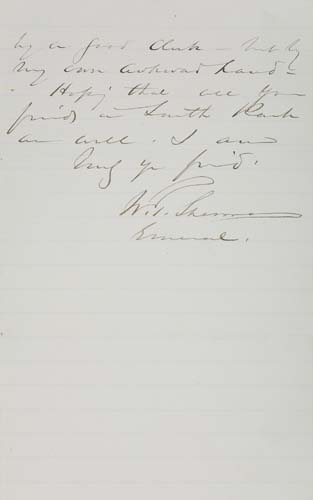 by a good clerk – but by
my own awkward hand –
Hoping that all your
friends in South Park
are well. I am
Truly yr friend.
W.T. Sherman
General.